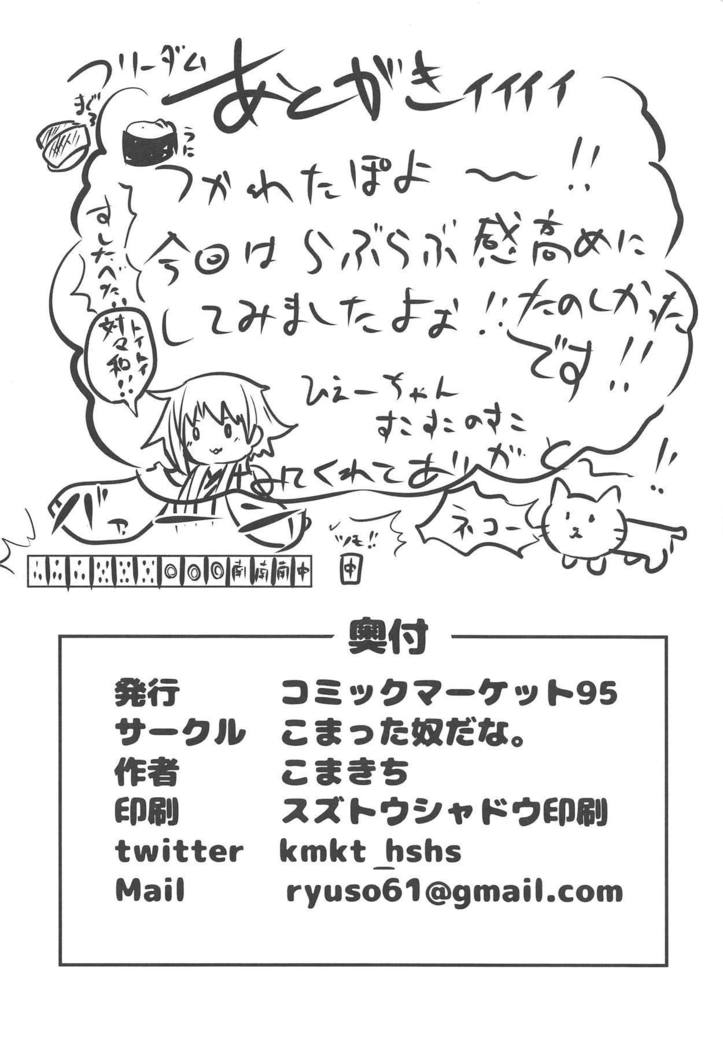 フリーダム
あとがきィィィィ
まぐろ
うに
つかれたぽよ〜!!
今回はらぶらぶ感高めに
してみましたよぉ!!たのしかった
です!!
すしたべたい
トイトイ
対々和!!
ひえーちゃん
すこすこのすこ
みてくれてありがと〜!!
ネコー
ツモ!!
南 南 南 中
中
奥付
発行 コミックマーケット95
サークル こまった奴だな。
作者 こまきち
印刷 スズトウシャドウ印刷
twitter kmkt_hshs
Mail ryuso61@gmail.com